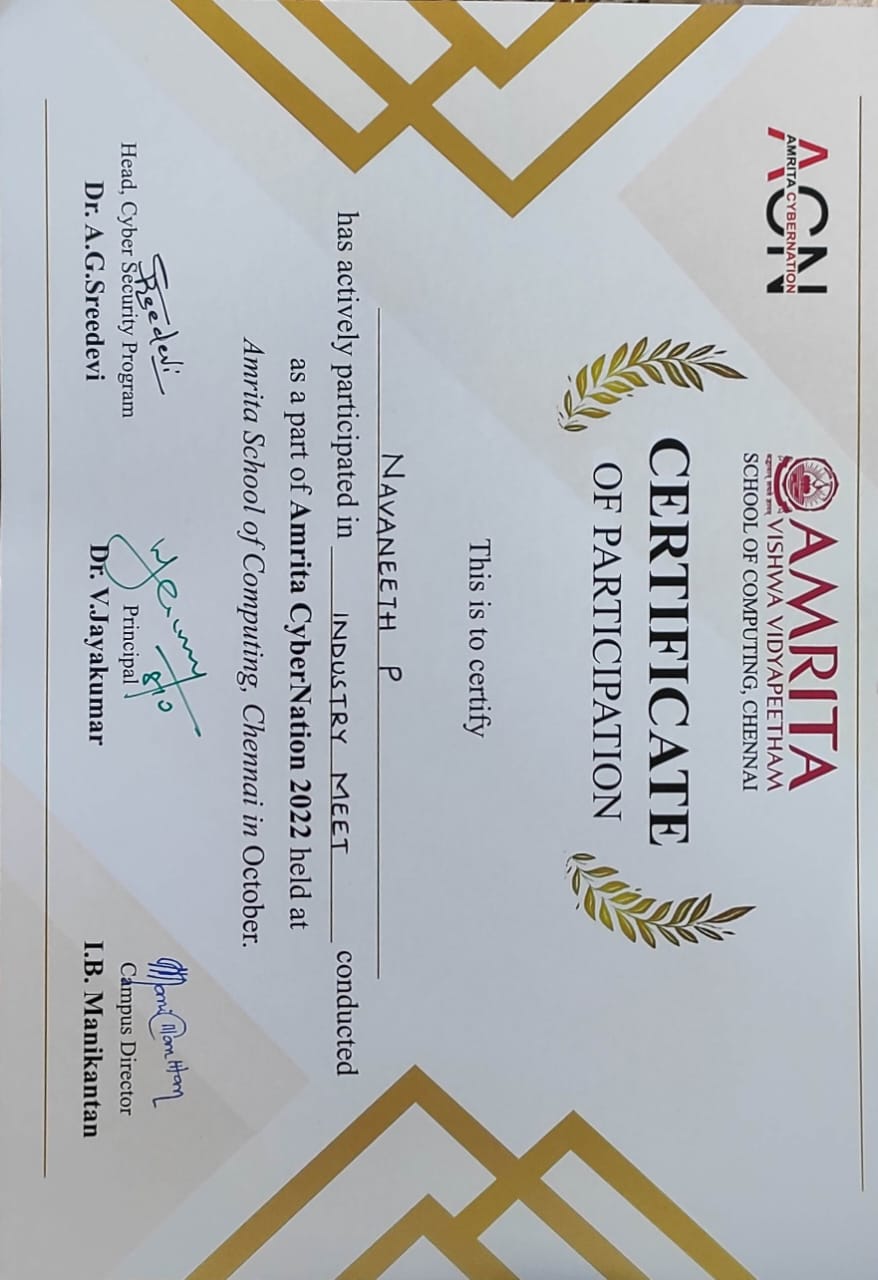 ACN
AMRITA CYBERNATION
AMRITA
VISHWA VIDYAPEETHAM
SCHOOL OF COMPUTING, CHENNAI
CERTIFICATE
OF PARTICIPATION
This is to certify
NAVANEETH P
has actively participated in INDUSTRY MEET conducted
as a part of Amrita CyberNation 2022 held at
Amrita School of Computing, Chennai in October.
Sreedevi
Head, Cyber Security Program
Dr. A.G.Sreedevi
Principal
Dr. V.Jayakumar
Campus Director
I.B. Manikantan